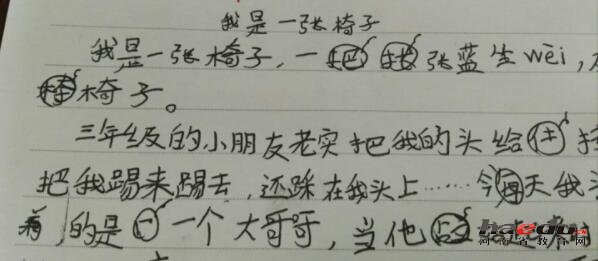 我是一张椅子
我是一张椅子，一把 张蓝生wēi，
椅子。
三年级的小朋友老实把我的头给
把我踢来踢去，还踩在我头上……今每天我
的是 一个大哥哥，当他
haedu.cn
河南省教育网